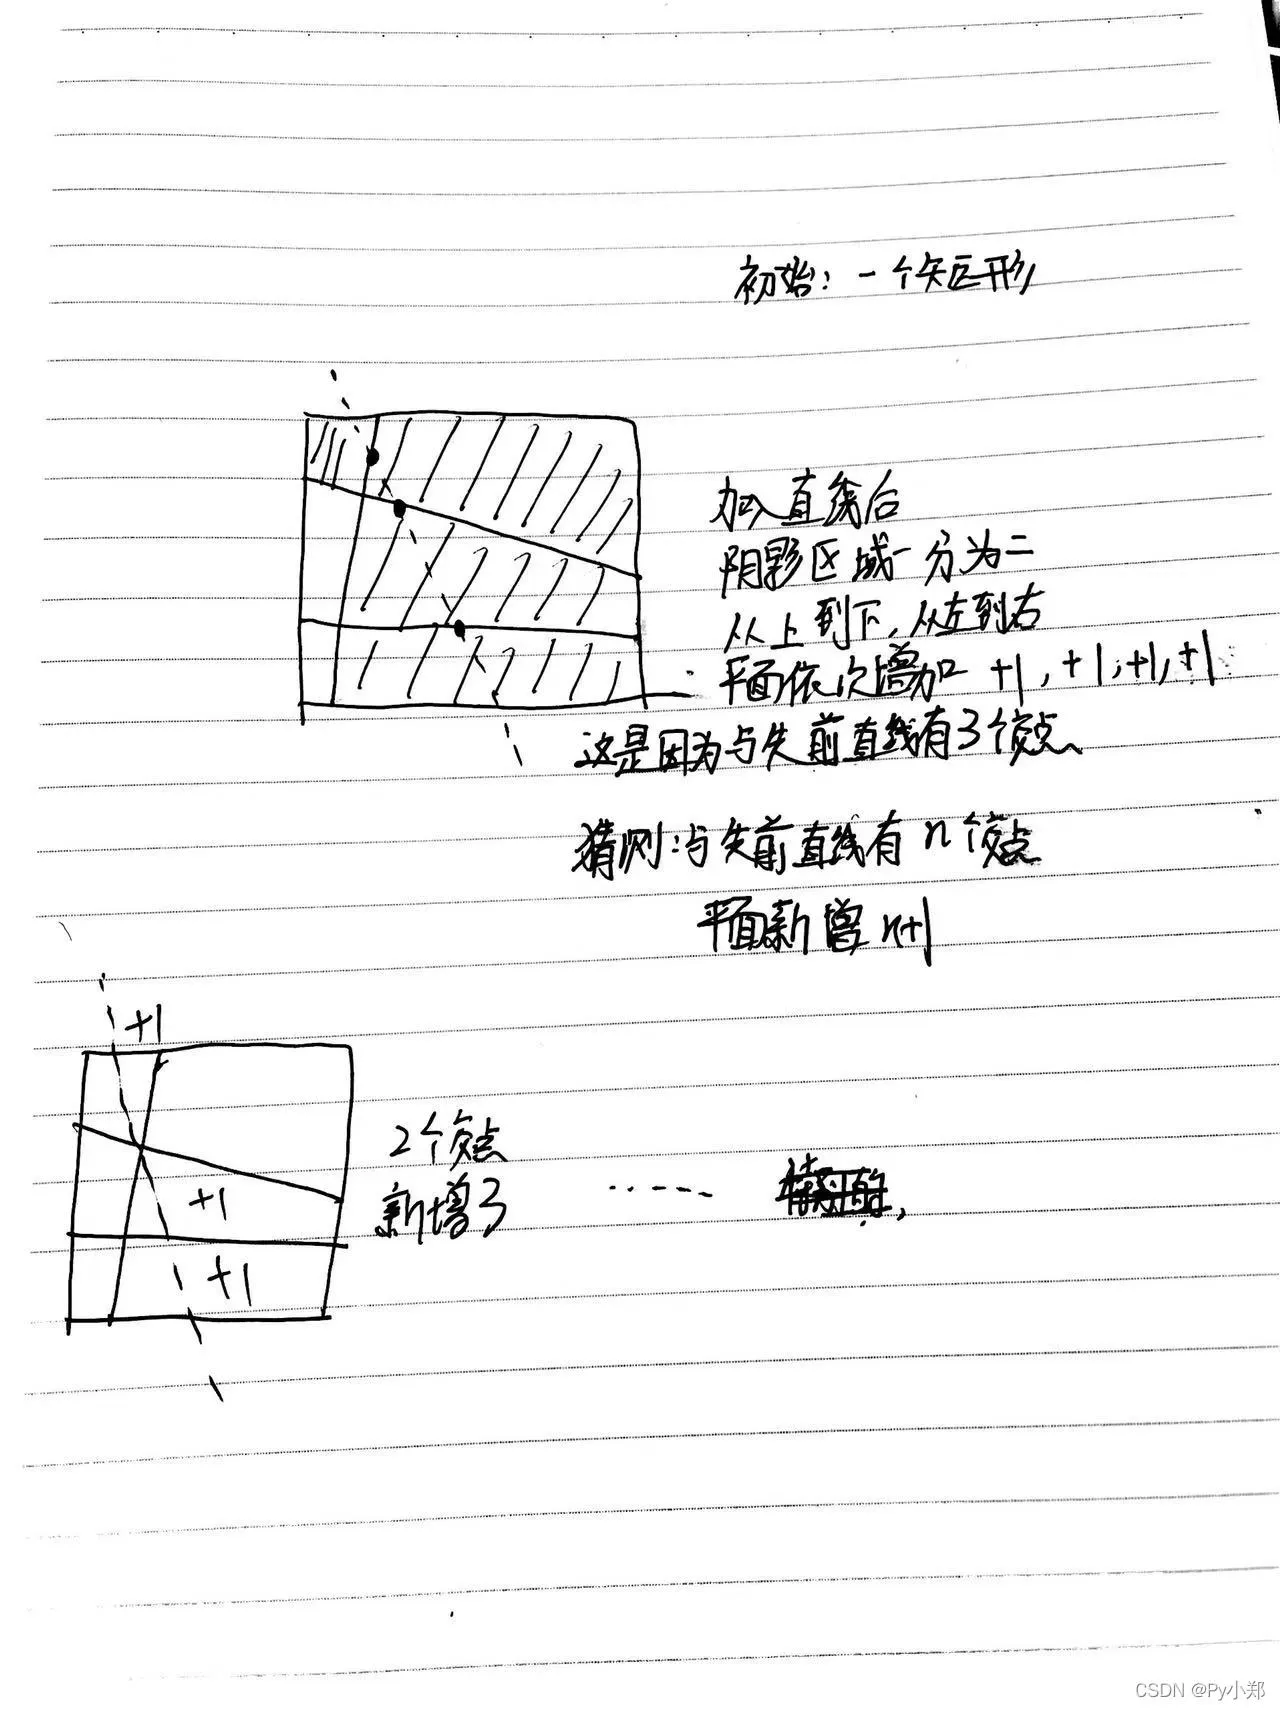 初始：一个矩形
加入直线后
阴影区域一分为二
从上到下，从左到右
平面依次增加 +1，+1，+1，+1
这是因为与先前直线有3个交点、
猜测：与先前直线有n个交点
平面新增n+1
+1
2个交点
新增3
+1
+1
CSDN @Py小郑